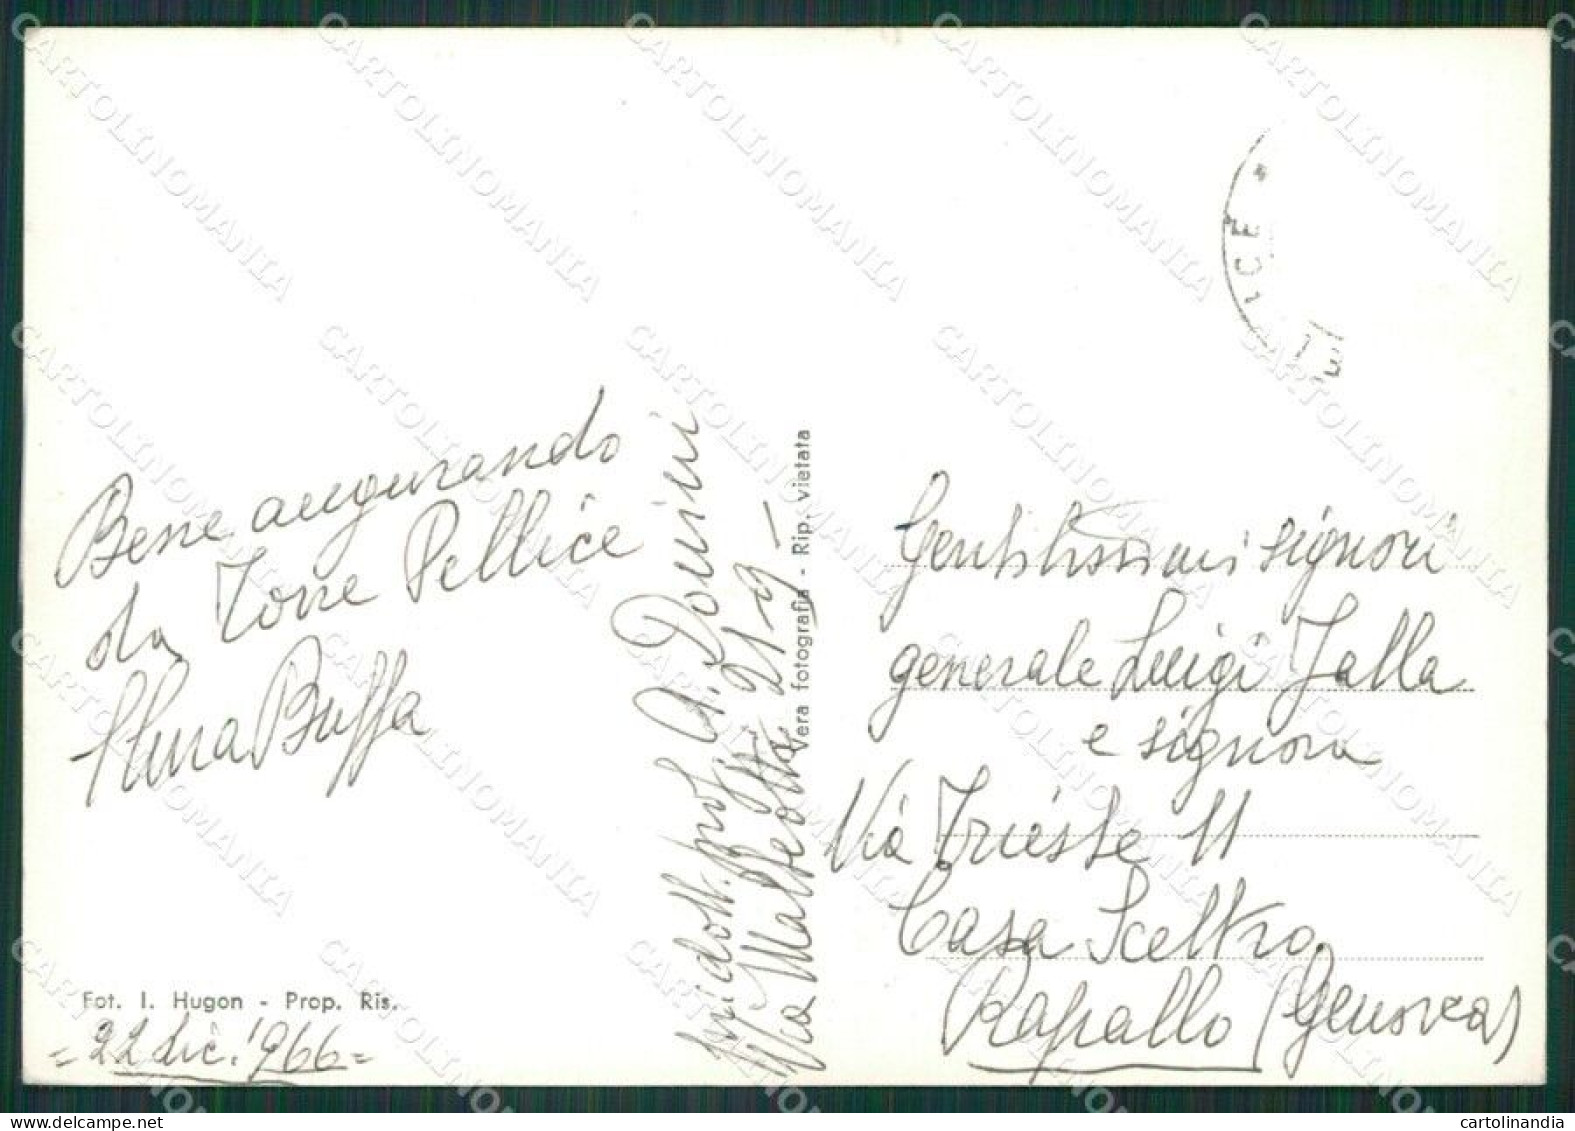 Bene augurando
da Torre Pellice
Elena Buffa
Fot. I. Hugon - Prop. Ris.
= 22 dic. 1966 =
prof. A.
Via Matteotti 21
Vera fotografia - Rip. vietata
LICE *
Gentilissimi signori
generale Luigi Jalla
e signora
Via Trieste 11
Casa Sceltra
Rapallo (Genova)
CARTOLINOMANIA
www.delcampe.net
cartolinandia